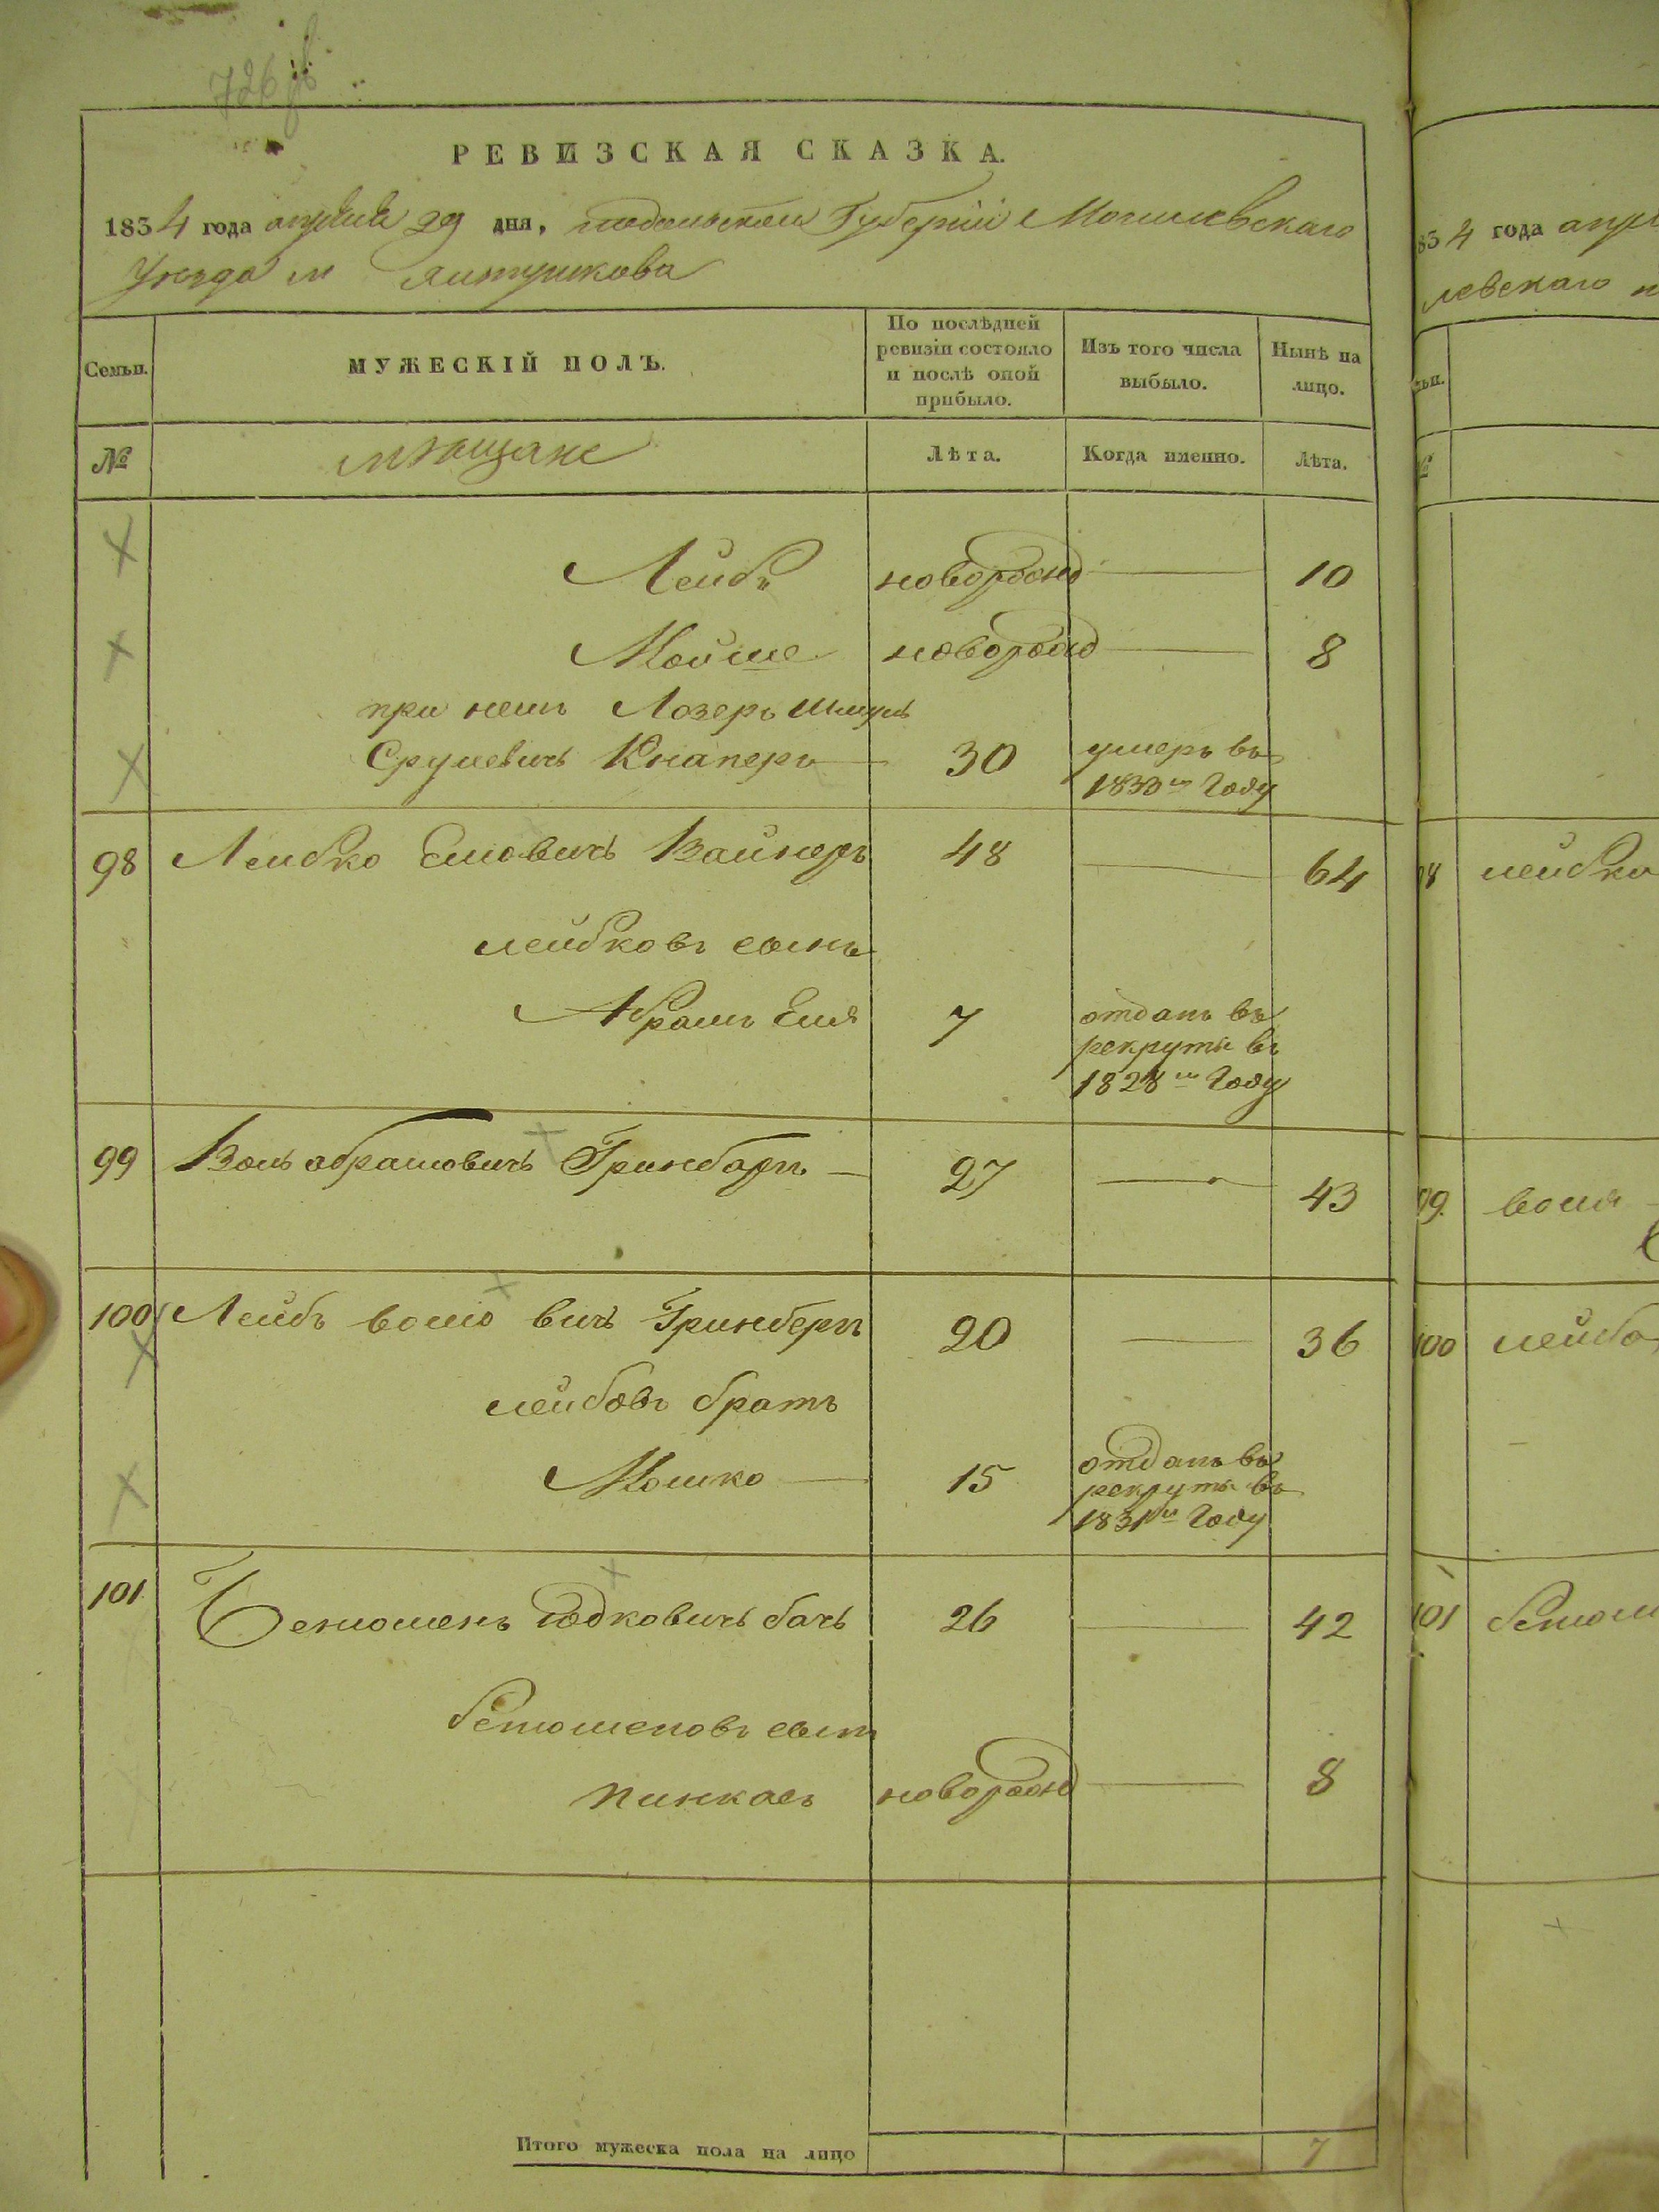 726
РЕВИЗСКАЯ СКАЗКА.
1834 года апреля 29 дня, подольской Губернiи Могилевскаго
Уезда м Ялтушкова
Семьи. МУЖЕСКІЙ ПОЛЪ. По послѣдней ревизіи состояло и послѣ оной прибыло. Изъ того числа выбыло. Нынѣ на лицо.
№ мѣщане Лѣта. Когда именно. Лѣта.
Лейбъ новорожд 10
Мойше новорожд 8
при немъ Лозеръ Шмуль
Срулевичъ Кнаперъ 30 умеръ въ
1830м Году
98 Лейбко Елiовичъ Вайнеръ 48 64
лейбковъ сынъ
Абрамъ Еля 7 отданъ въ
рекруты въ
1828м Году
99 Воль абрамовичъ Гринбаргъ 27 43
100 Лейбъ волiо вичъ Гринбергъ 20 36
лейбовъ братъ
Мошко 15 отданъ въ
рекруты въ
1831м Году
101 Бенюменъ юдковичъ бачъ 26 42
бенюменовъ сынъ
пинкасъ новорожд 8
Итого мужеска пола на лицо 7
834 года
левскаго
98 лейбко
99. воля
100 лейба
101